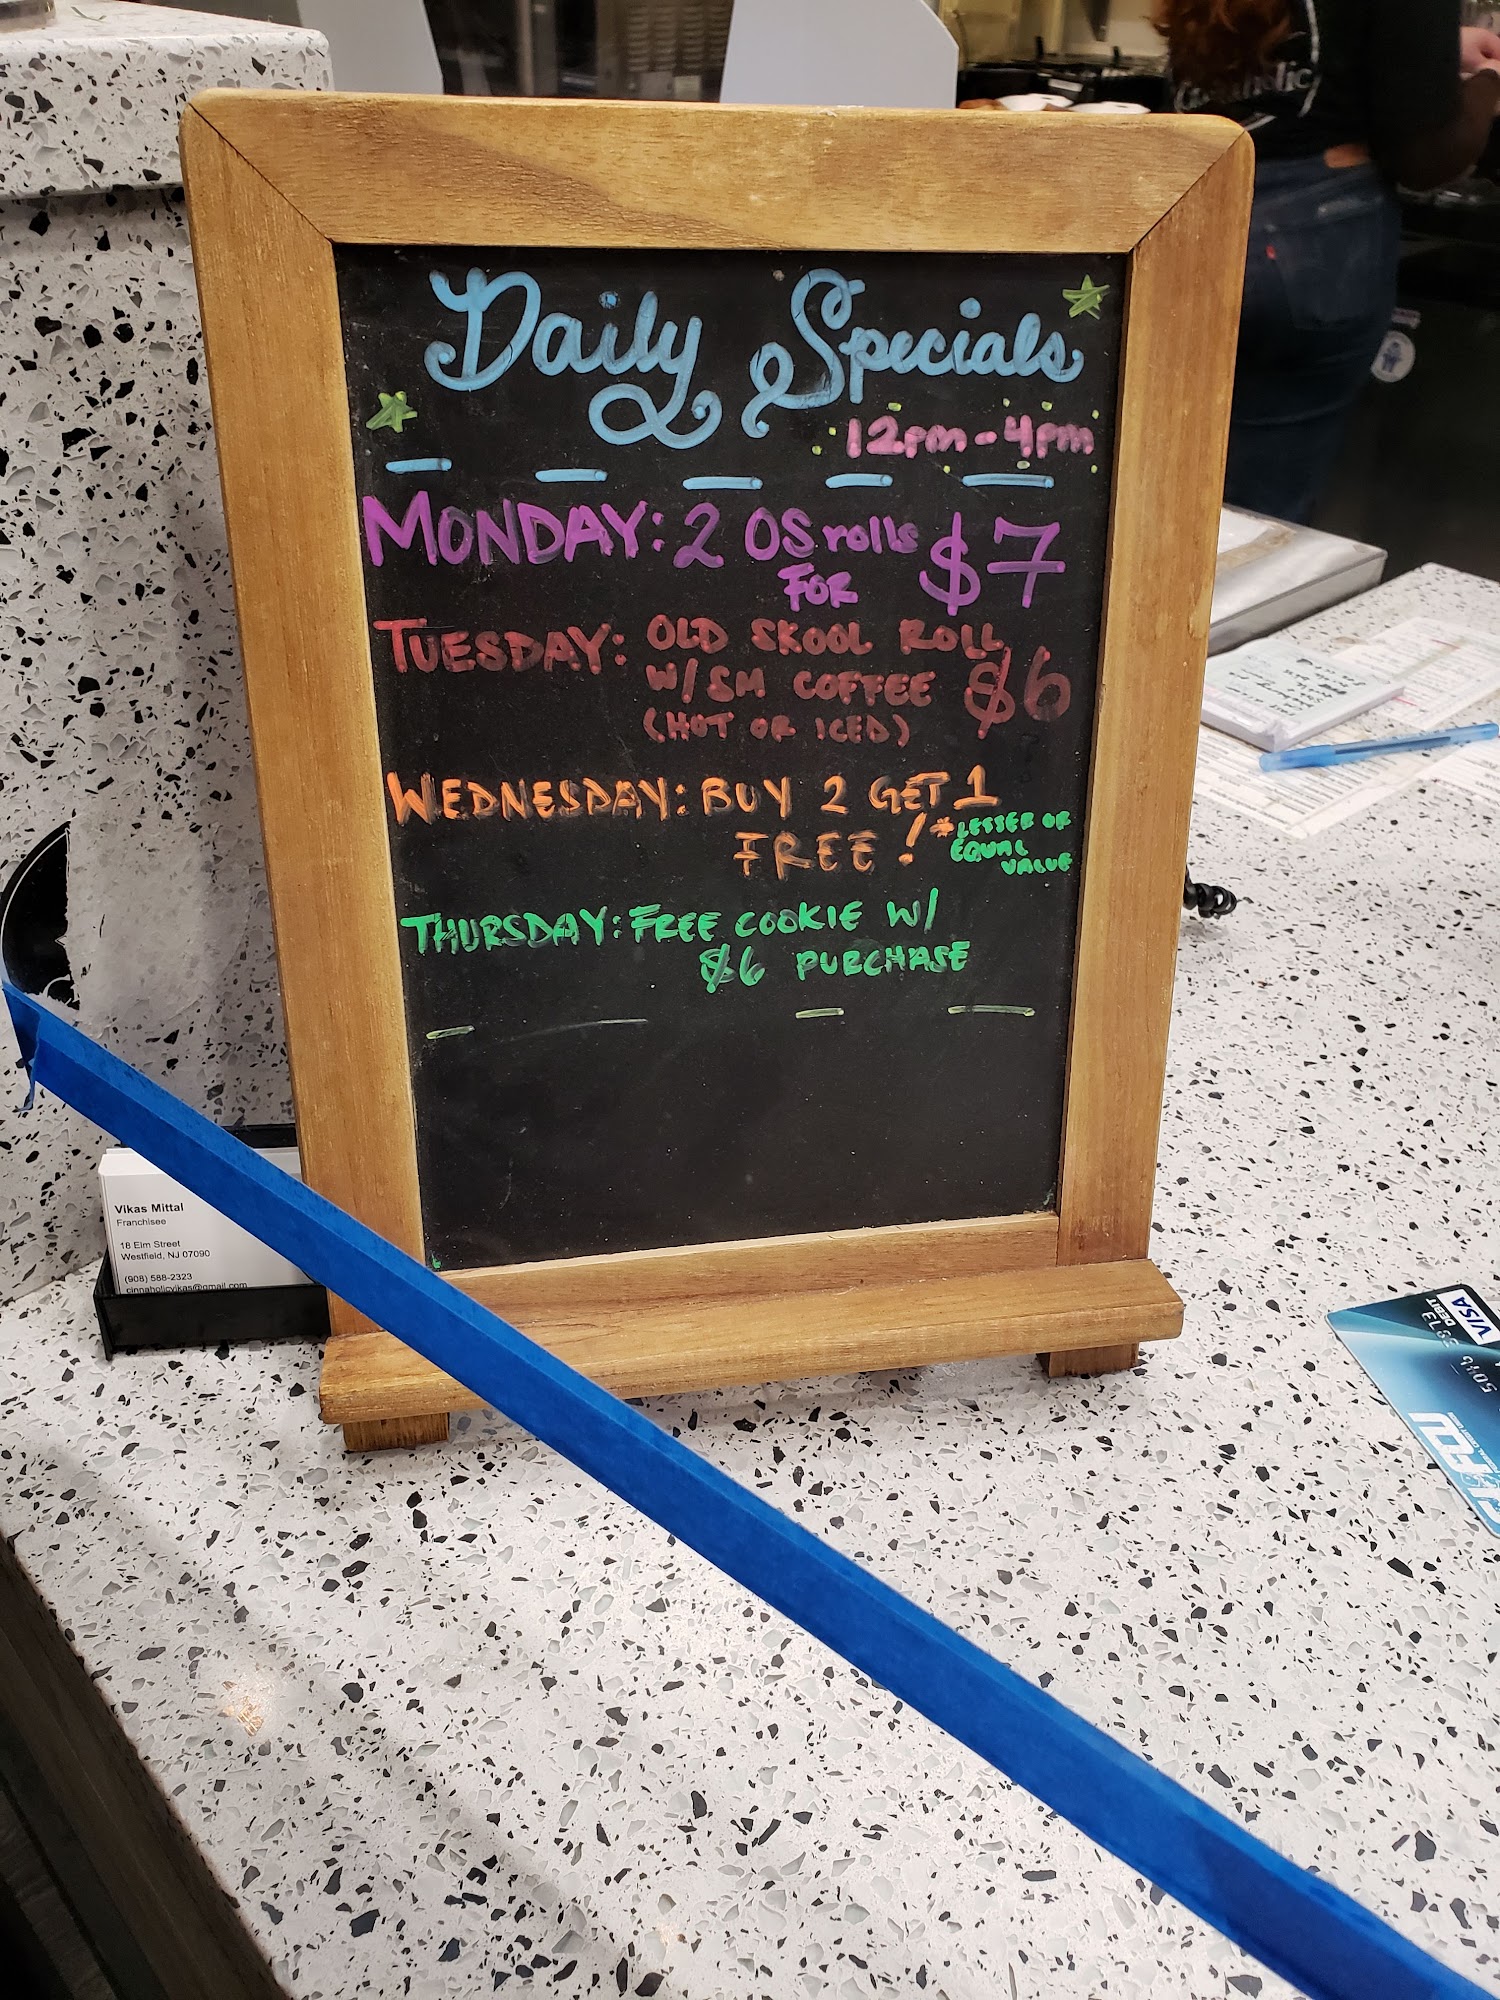 Daily Specials
12pm-4pm
MONDAY: 2 OS rolls $7
FOR
TUESDAY: OLD SKOOL ROLL
W/ SM COFFEE $6
(HOT OR ICED)
WEDNESDAY: BUY 2 GET 1
FREE! *LESSER OR
EQUAL
VALUE
THURSDAY: FREE COOKIE W/
$6 PURCHASE
Vikas Mittal
Franchisee
18 Elm Street
Westfield, NJ 07090
(908) 588-2323
cinnaholicvikas@gmail.com
VISA
DEBIT